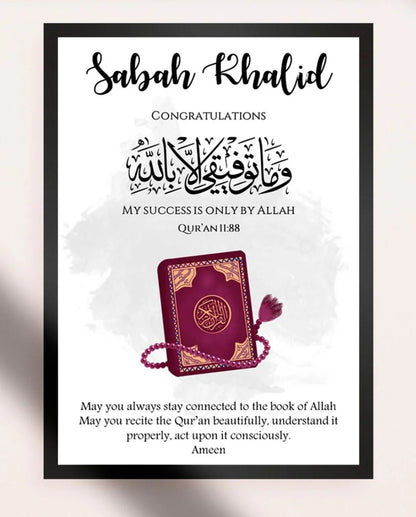 Sabah Khalid
Congratulations
وما توفيقي إلا بالله
My success is only by Allah
Qur'an 11:88
القرآن الكريم
May you always stay connected to the book of Allah
May you recite the Qur'an beautifully, understand it
properly, act upon it consciously.
Ameen